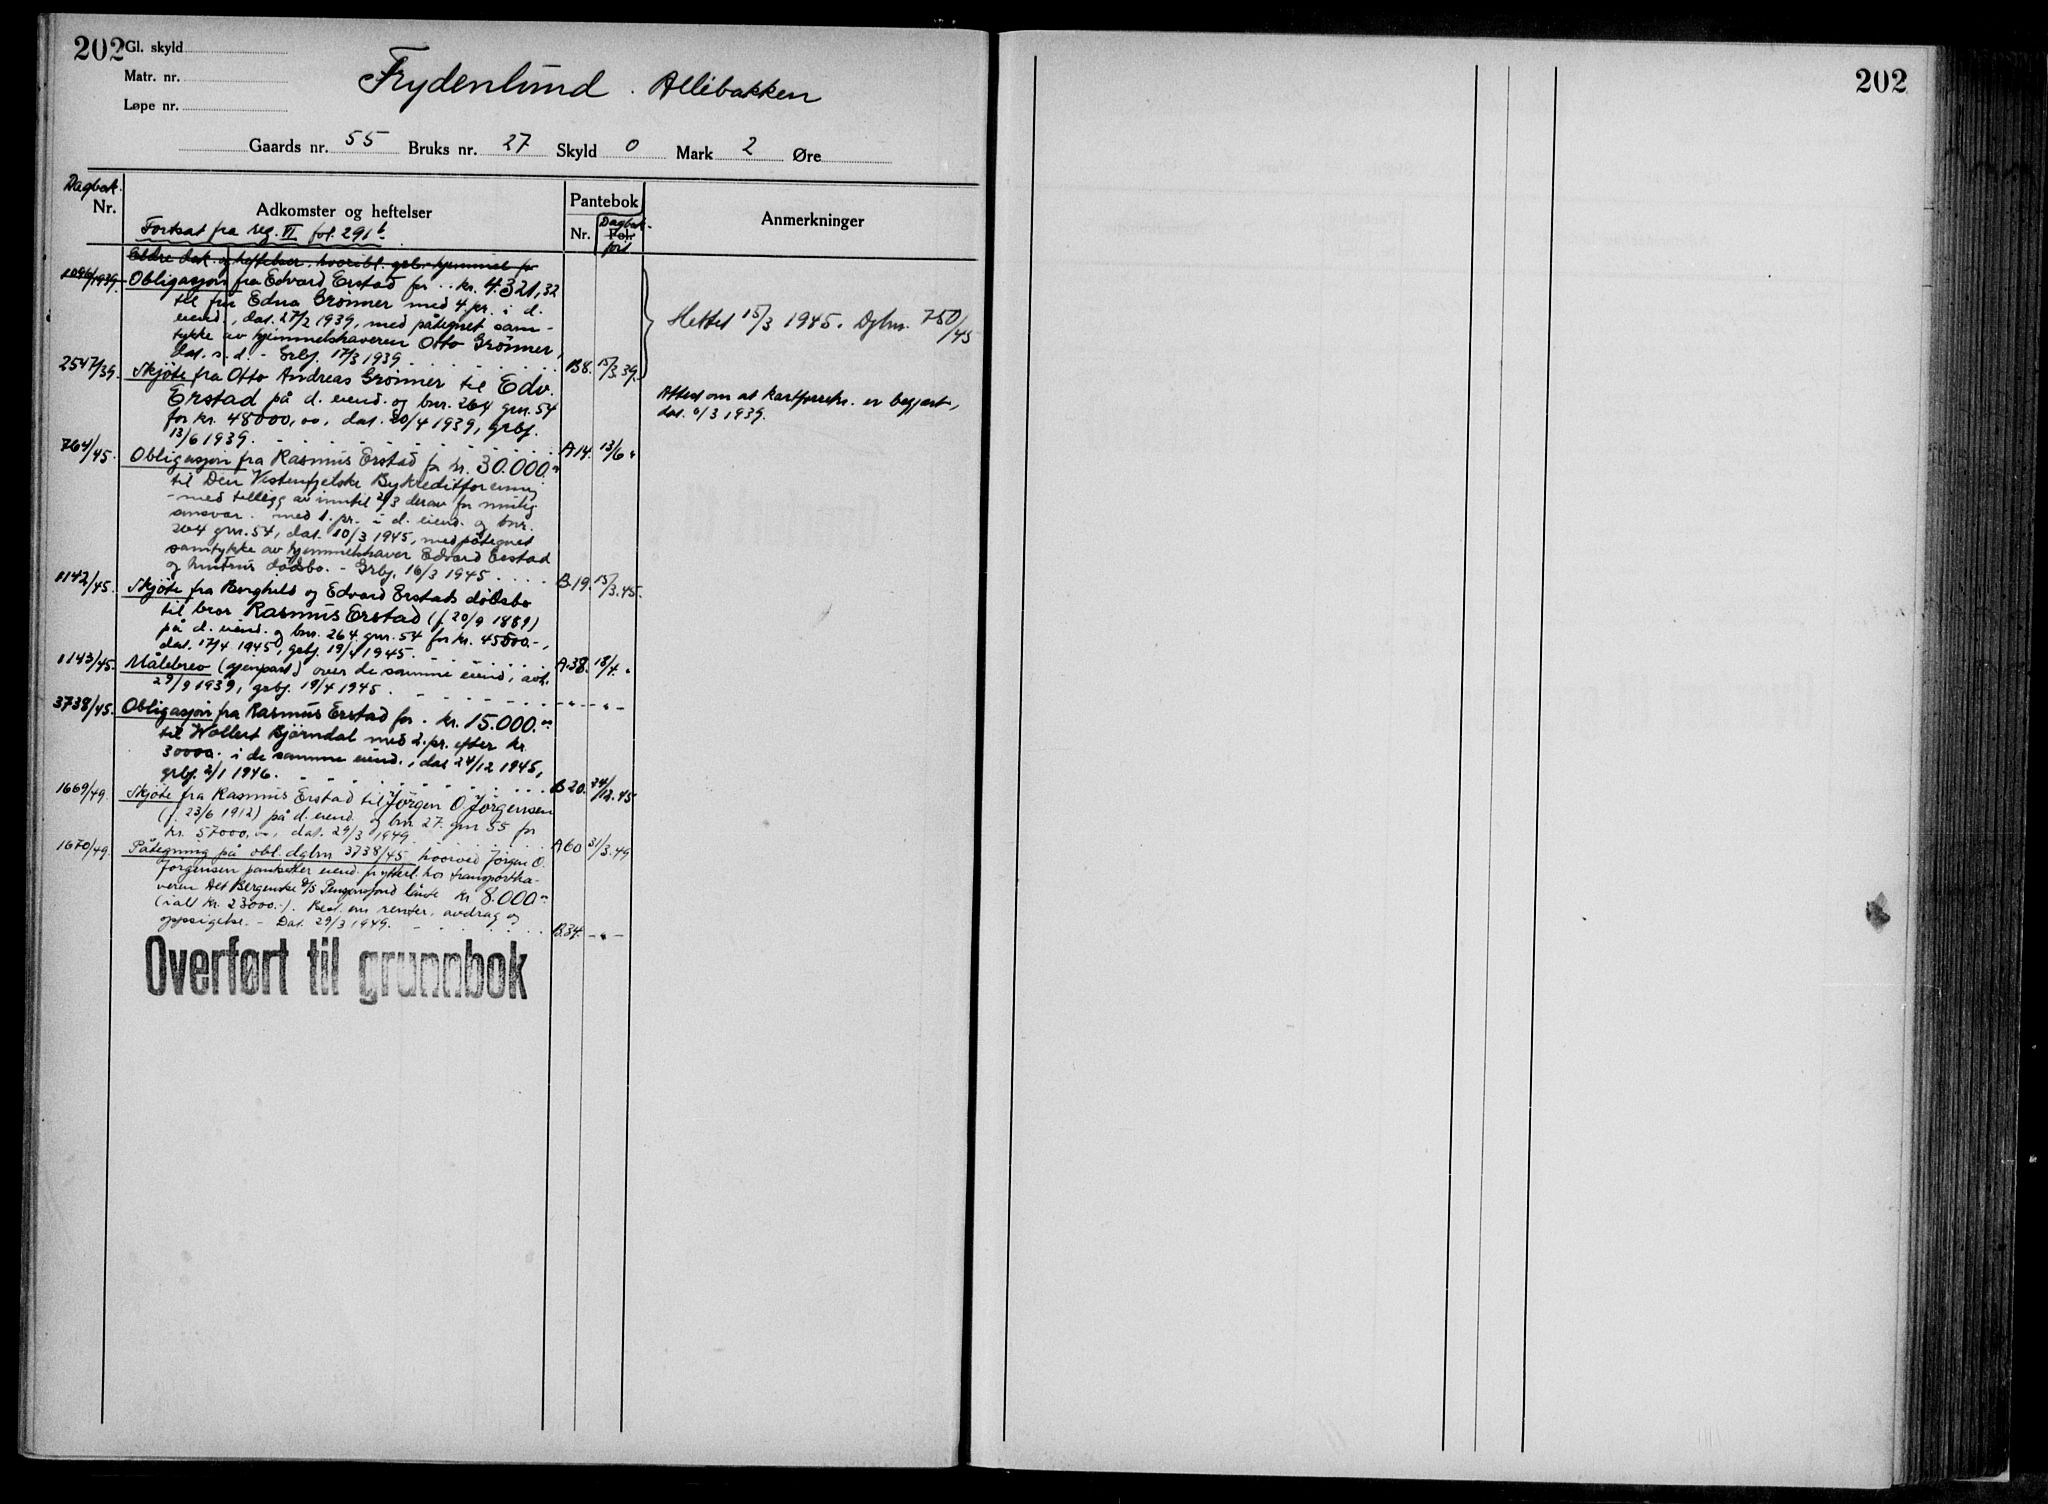 202
Gl. skyld
Matr. nr.
Løpe nr.
Frydenlund. Allébakken
Gaards nr. 55 Bruks nr. 27 Skyld 0 Mark 2 Øre
Dagbok
Nr.
Adkomster og heftelser
Pantebok
Nr.
Fol.
Dagbok-
ført
Anmerkninger
Fortsat fra reg. VI fol. 291b
Eldre dok. og heftelser
1096/1939. Obligasjon fra Edvard Erstad for .. kr. 4.321,32
til frk Edna Grönner med 4. pr. i d.
eiend., dat. 27/2 1939, med påtegnet sam-
tykke av hjemmelshaveren Otto Grönner,
dat. s. d. - Grbj. 17/3 1939 B8. 15/3 39.
Slettet 15/3 1945. Dgbnr. 750/45
2547/39. Skjöte fra Otto Andreas Grönner til Edv.
Erstad på d. eiend. og bnr. 264 gnr. 54
for kr. 48000,00, dat. 20/4 1939, grbj.
13/6 1939. A14. 13/6 "
Attest om at kartforretn. er begjært,
dat. 1/3 1939.
764/45. Obligasjon fra Rasmus Erstad for kr. 30.000.-
til Den Vestenfjelske Bykreditforening
- med tillegg av inntil 2/3 derav for mulig
ansvar - med 1. pr. i d. eiend. og bnr.
264 gnr. 54, dat. 10/3 1945, med påtegnet
samtykke av hjemmelshaver Edvard Erstad
og hustrus dødsbo. - Grbj. 16/3 1945 B.19. 15/3.45.
1142/45. Skjöte fra Borghild og Edvard Erstads dödsbo
til bror Rasmus Erstad (f. 20/9 1889)
på d. eiend. og bnr. 264 gnr. 54 for kr. 45000.-,
dat. 17/4 1945, grbj. 19/4 1945. A.38. 18/4. "
1143/45. Målebrev (gjenpart) over de samme eiend., avh.
29/9 1939, grbj. 19/4 1945. - " - - " -
3738/45. Obligasjon fra Rasmus Erstad for . kr. 15.000.-
til Wollert Bjørndal med 2. pr. efter kr.
30000.- i de samme eiend., dat 24/12 1945,
grbj. 2/1 1946. B20. 24/12.45
1669/49. Skjöte fra Rasmus Erstad til Jörgen O. Jörgensen
(f. 23/6 1912) på d. eiend. og bnr 27. gnr 55 for
kr. 57000,00, dat. 29/3 1949 A60 31/3.49
1670/49. Påtegning på obl. dgbnr 3738/45, hvorved Jörgen O.
Jörgensen pantsetter eiend. f. ytterl. hos transportha-
veren Det Bergenske D/S Pensjonsfond lånte kr 8.000.-
(ialt kr. 23000.-). Best. om renter, avdrag og
oppsigelse. - Dat. 29/3 1949. B.34. - " -
Overført til grunnbok
202